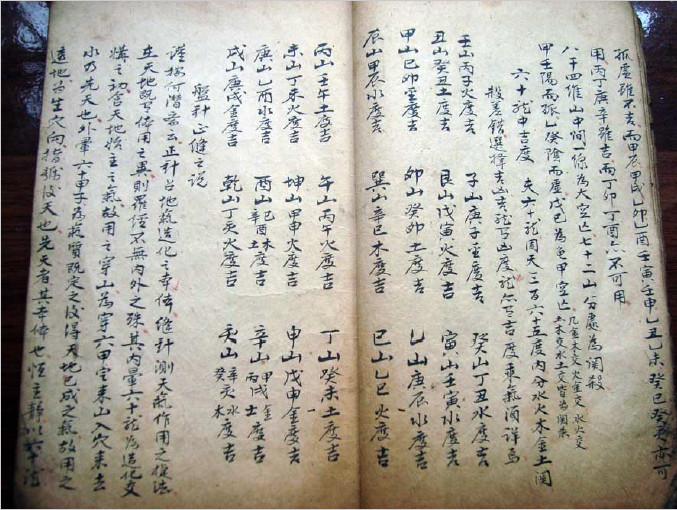 孤虛雖不吉而甲辰甲戌乙卯乙酉壬寅壬申乙丑乙未癸巳癸亥亦可
用丙丁庚辛雖吉而丁卯丁酉亦不可用
八干四維山中間一線為大空亡七十二山分處為関殺
几金木交火金交水火交
土木交水土交皆為関煞
甲壬陽而孤乙癸陰而虛戊己為龜甲空亡
六十龍中吉度
夫六十龍周天三百六十五度內分水火木金土関
殺差錯選擇
壬山丙子火度吉
子山庚子金度吉
癸山丁丑水度吉
丑山癸丑土度吉
艮山戊寅火度吉
寅山壬寅水度吉
甲山己卯金度吉
卯山癸卯土度吉
乙山庚辰水度吉
辰山甲辰水度吉
巽山辛巳木度吉
巳山乙巳火度吉
丙山壬午土度吉
午山丙午火度吉
丁山癸未土度吉
未山丁未火度吉
坤山甲申火度吉
申山戊申金度吉
庚山乙酉水度吉
酉山己酉木辛酉土度吉
辛山甲戌金丙戌土度吉
戌山庚戌金度吉
乾山丁亥火度吉
亥山辛亥水癸亥木度吉
盤針正縫之說
謹按何潛齋云正針者地氣造化之本体縫針測天氣作用之後法
在天地既有体用之異則羅經不無內外之殊其內暈六十龍為造化交
媾之初含天地始主之氣故用之穿山為穿六甲定來山入穴來去
水乃先天也外暈六十甲子為氣質既定之後得天地已成之氣故用之
透地為坐穴向指歸後天也先天者其本体也恆主靜以